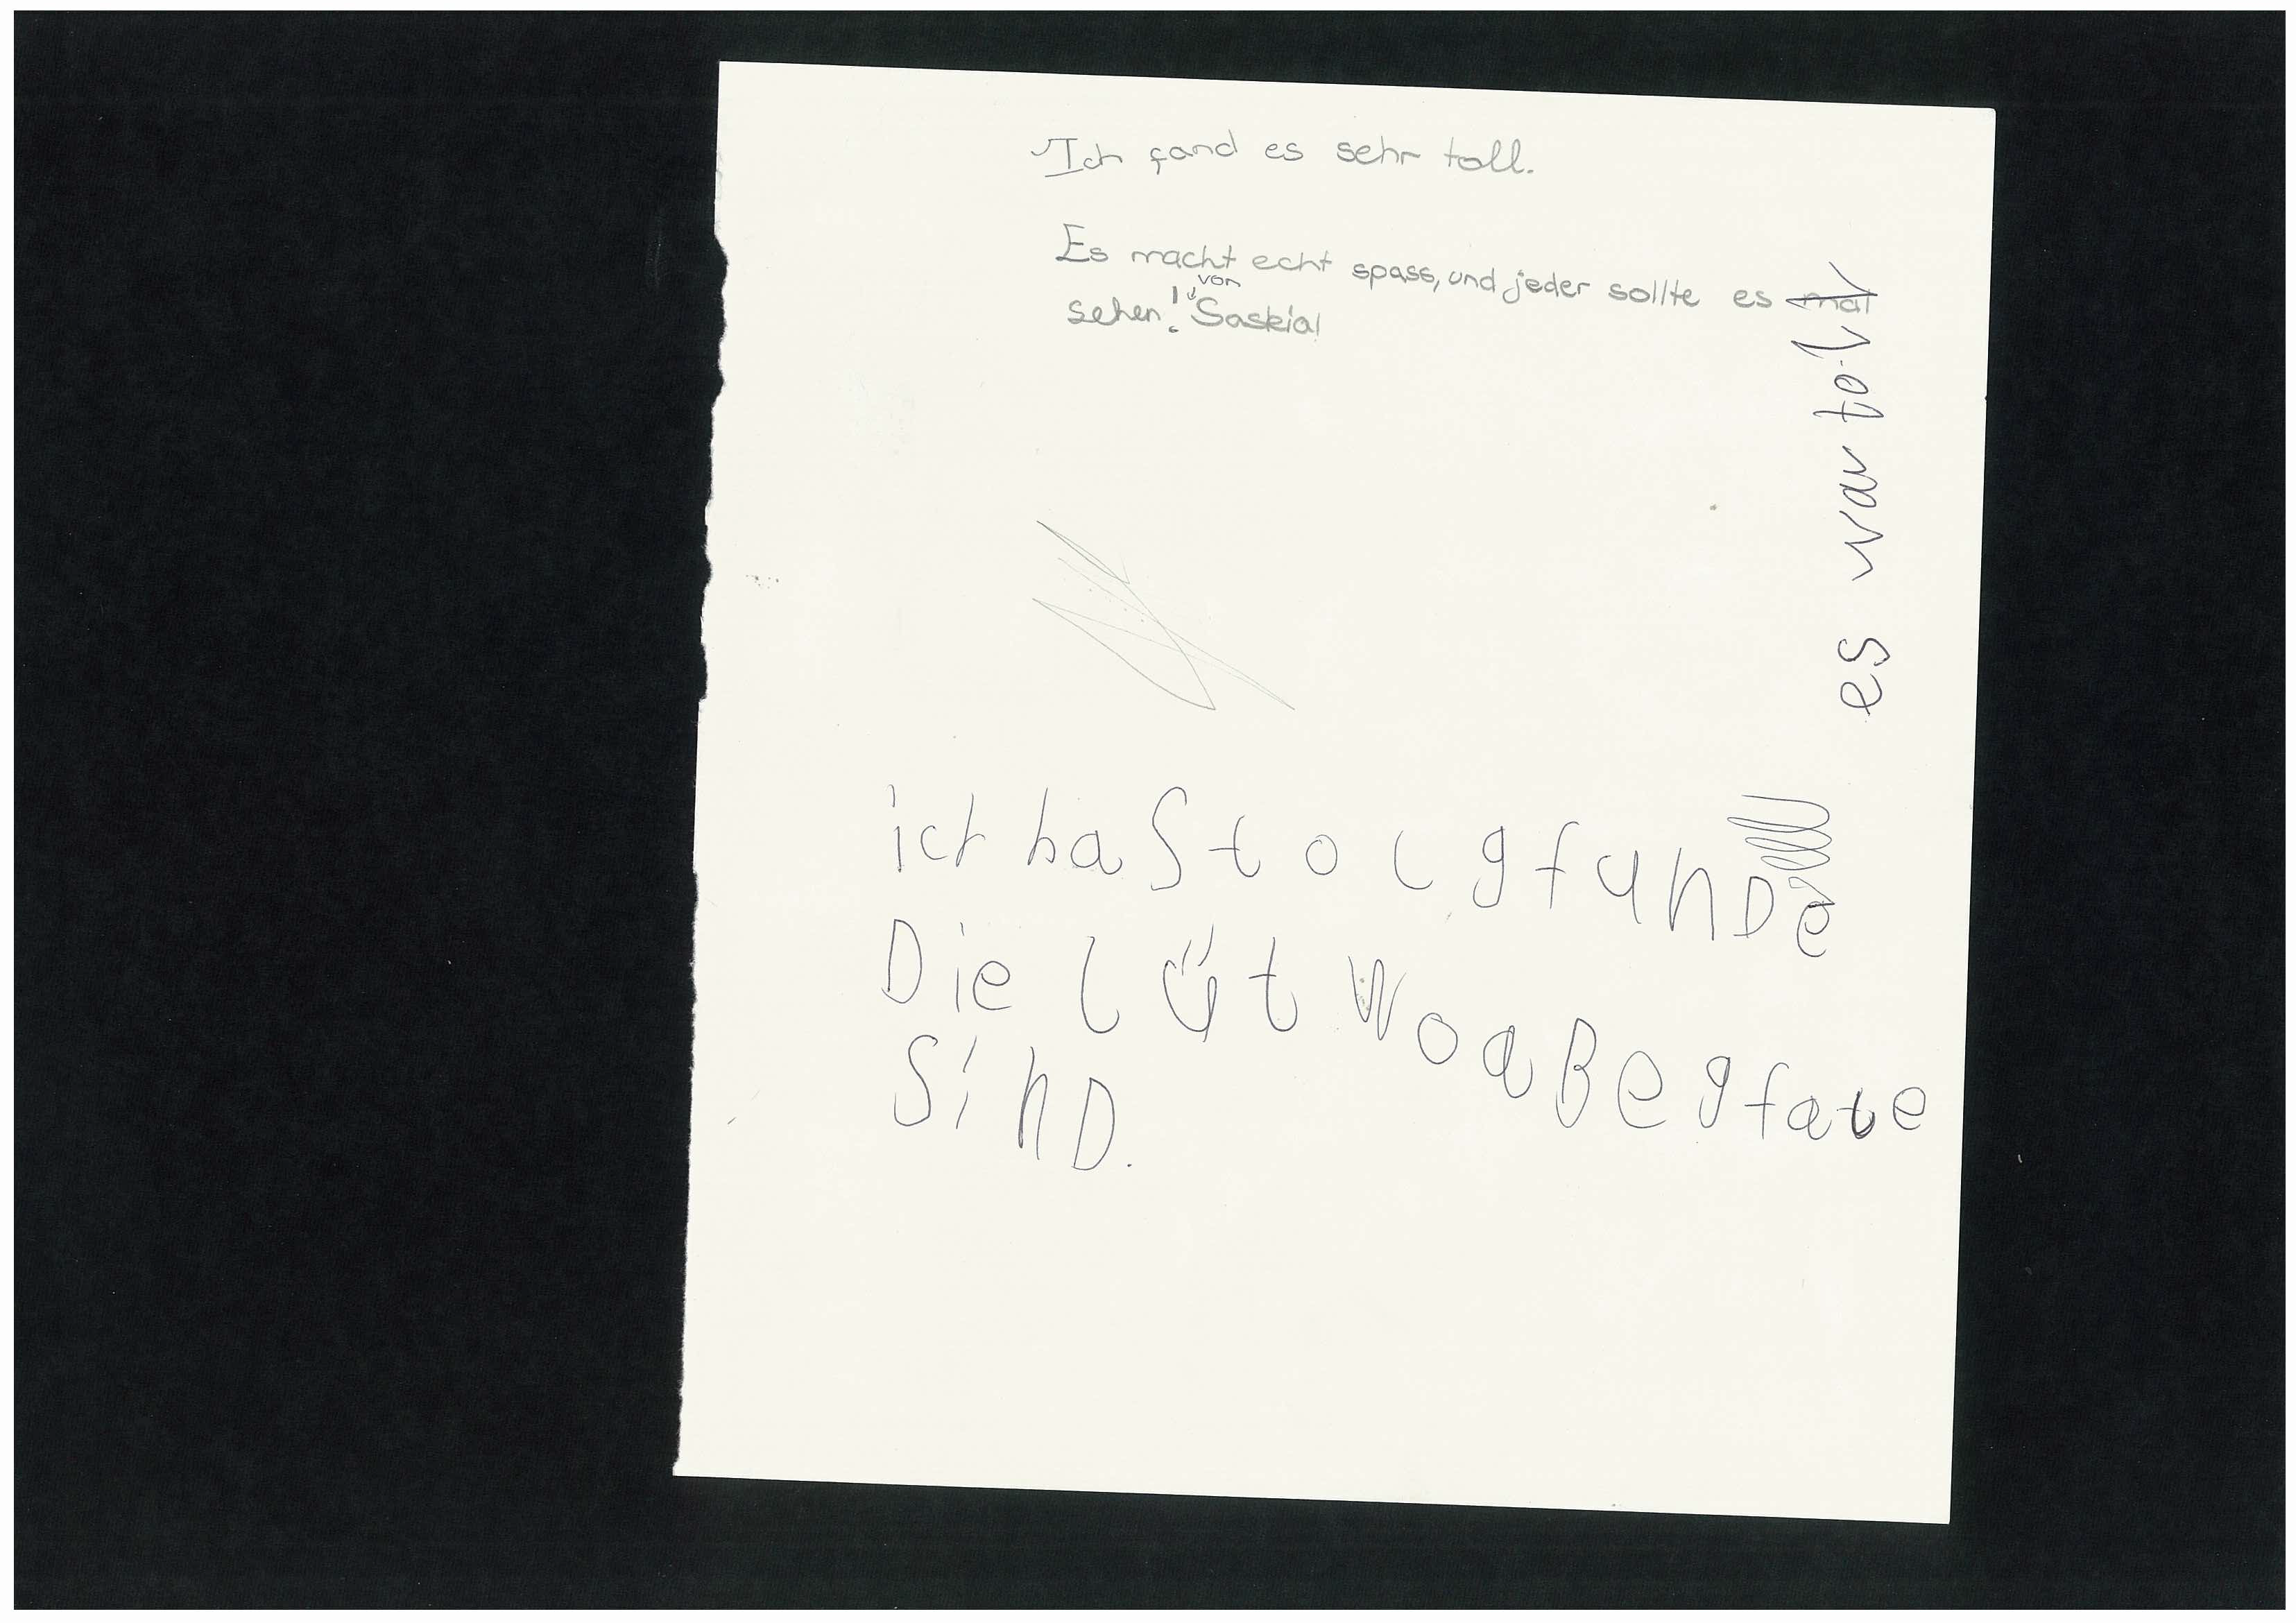 Ich fand es sehr toll.
Es macht echt spass, und jeder sollte es mal
sehen! von Saskia!
es war toll
ich ha S tol gfunde
Die lüt wo aBegfate
SinD.